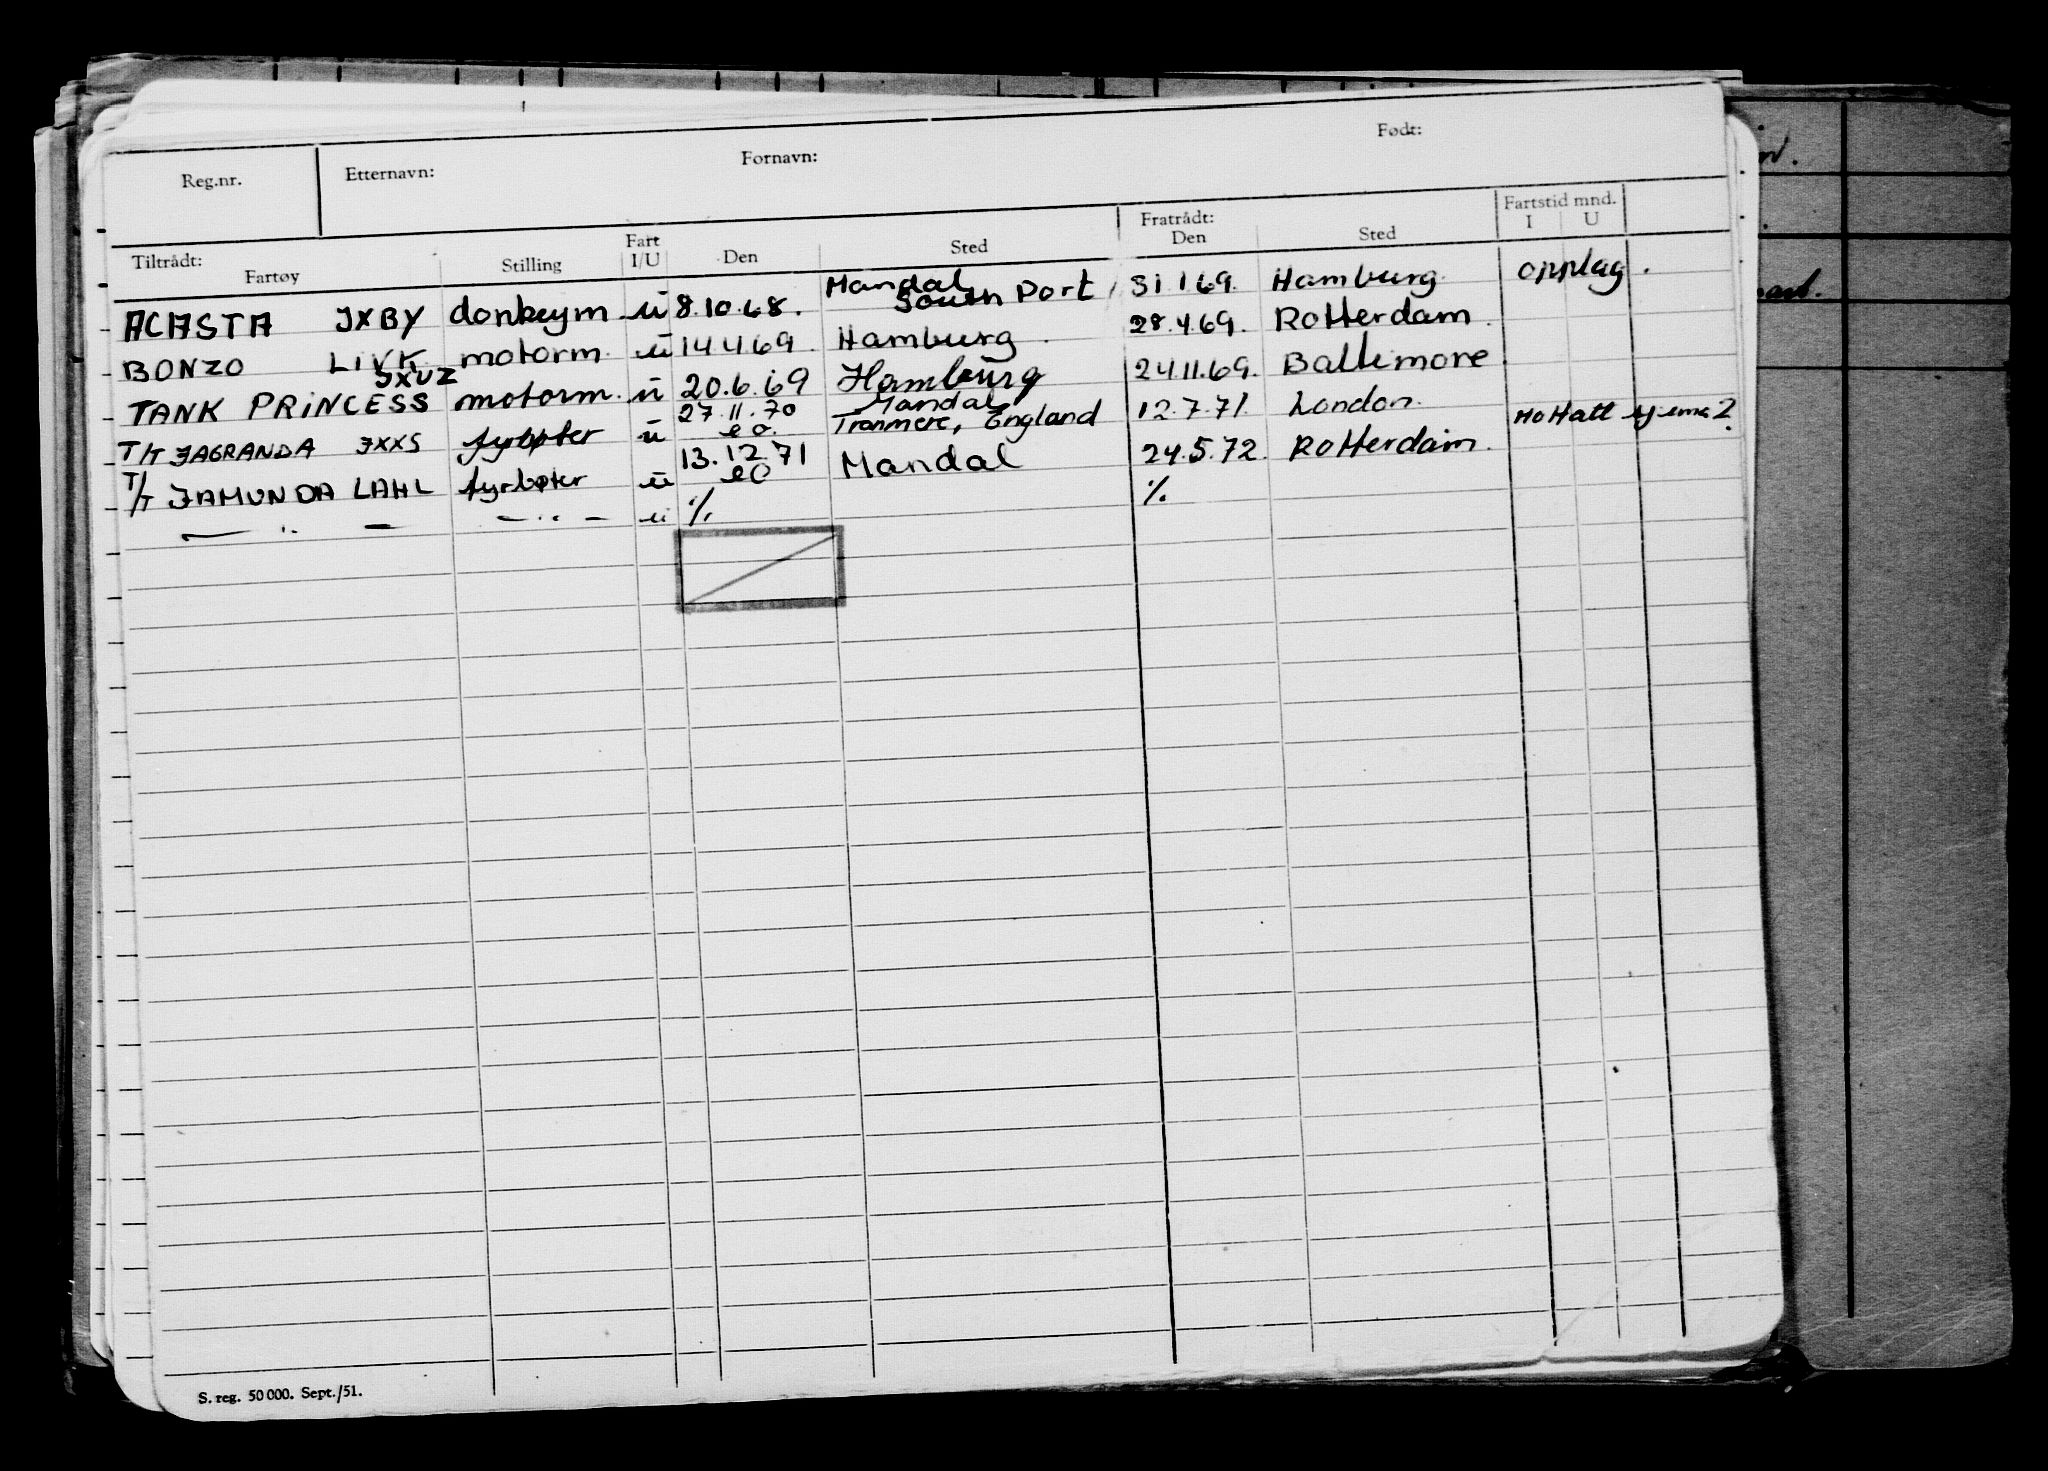 Reg.nr. Etternavn: Fornavn: Født:
Tiltrådt: Fratrådt: Fartstid mnd.
Fartøy Stilling Fart I/U Den Sted Den Sted I U
Mandal
ACASTA JXBY donkeym ü 8.10.68. South Port 31 1 69. Hamburg opplag.
BONZO LIVK motorm ü 14 4 69 Hamburg 28.4.69. Rotterdam
JXUZ
TANK PRINCESS motorm. ü 20.6.69 Hamburg 24.11.69. Baltimore
27.11.70 Mandal
T/T JAGRANDA JXXS fyrbøter ü Tranmere, England 12.7.71. London.
13.12.71
T/T JAMUNDA LAHL fyrbøter ü Mandal 24.5.72. Rotterdam.
— ,, — — ,, — ü ./. ./.
S. reg. 50 000. Sept./51.